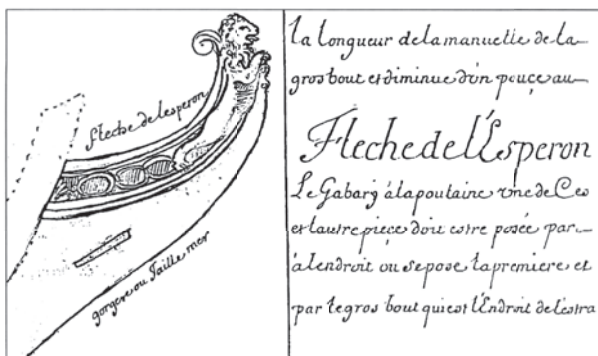 fleche de lesperon
gorgere ou Taille mer
la longueur de la manuelle de la
gros bout et diminue d'un pouce au
Fleche de l'Esperon
Le Gabary à la poulaine une de Ces
et lautre pièce doit estre posée par
à lendroit ou se pose la premiere, et
par le gros bout qui est l'Endroit de l'estra